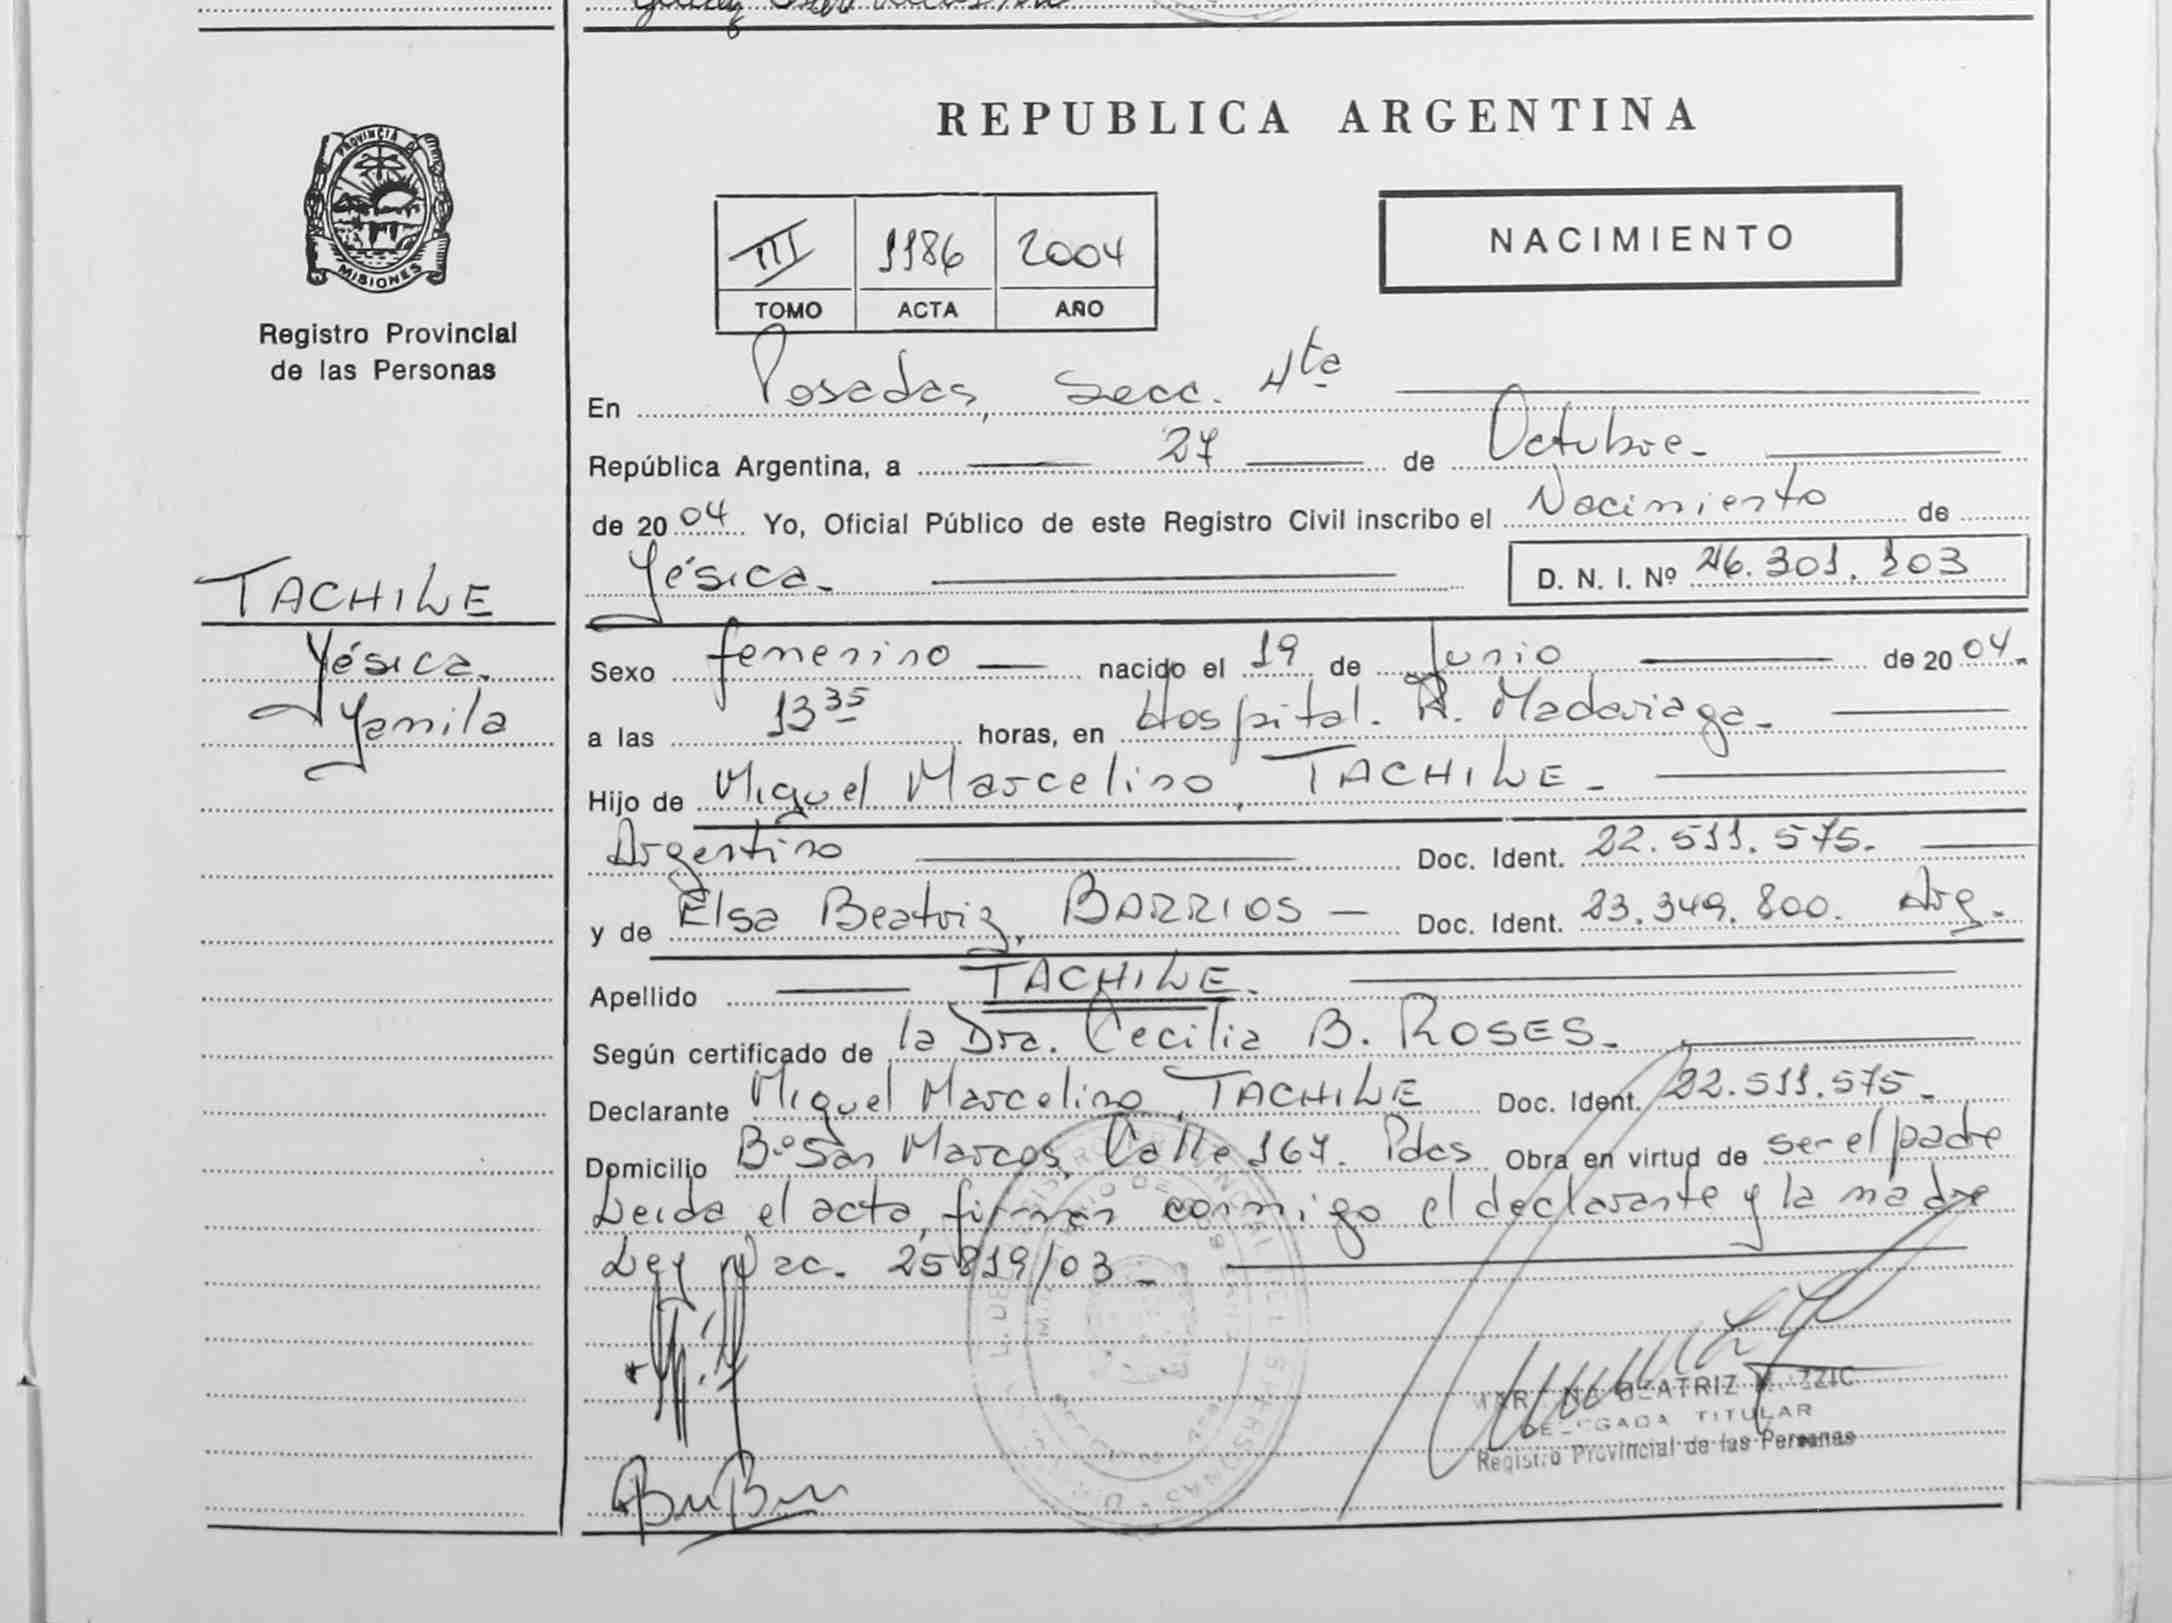 REPUBLICA ARGENTINA
PROVINCIA DE
MISIONES
Registro Provincial
de las Personas
III 1186 2004
TOMO ACTA AÑO
NACIMIENTO
En Posadas, Secc. 4ta
República Argentina, a 27 de Octubre.
de 2004 Yo, Oficial Público de este Registro Civil inscribo el Nacimiento de
Yésica. D. N. I. Nº 46.301.103
TACHILE
Yésica.
Yamila
Sexo femenino nacido el 19 de Junio de 2004.
a las 13 35 horas, en Hospital. R. Madariaga.
Hijo de Miguel Marcelino, TACHILE.
Argentino Doc. Ident. 22.511.575.
y de Elsa Beatriz, BARRIOS Doc. Ident. 23.349.800. Arg.
Apellido TACHILE.
Según certificado de la Dra. Cecilia B. ROSES.
Declarante Miguel Marcelino, TACHILE Doc. Ident. 22.511.575.
Domicilio Bº San Marcos, Calle 167. Pdas Obra en virtud de ser el padre
Leida el acta, firman conmigo el declarante y la madre
Ley Nac. 25819/03.
BEATRIZ
DELEGADA TITULAR
Registro Provincial de las Personas